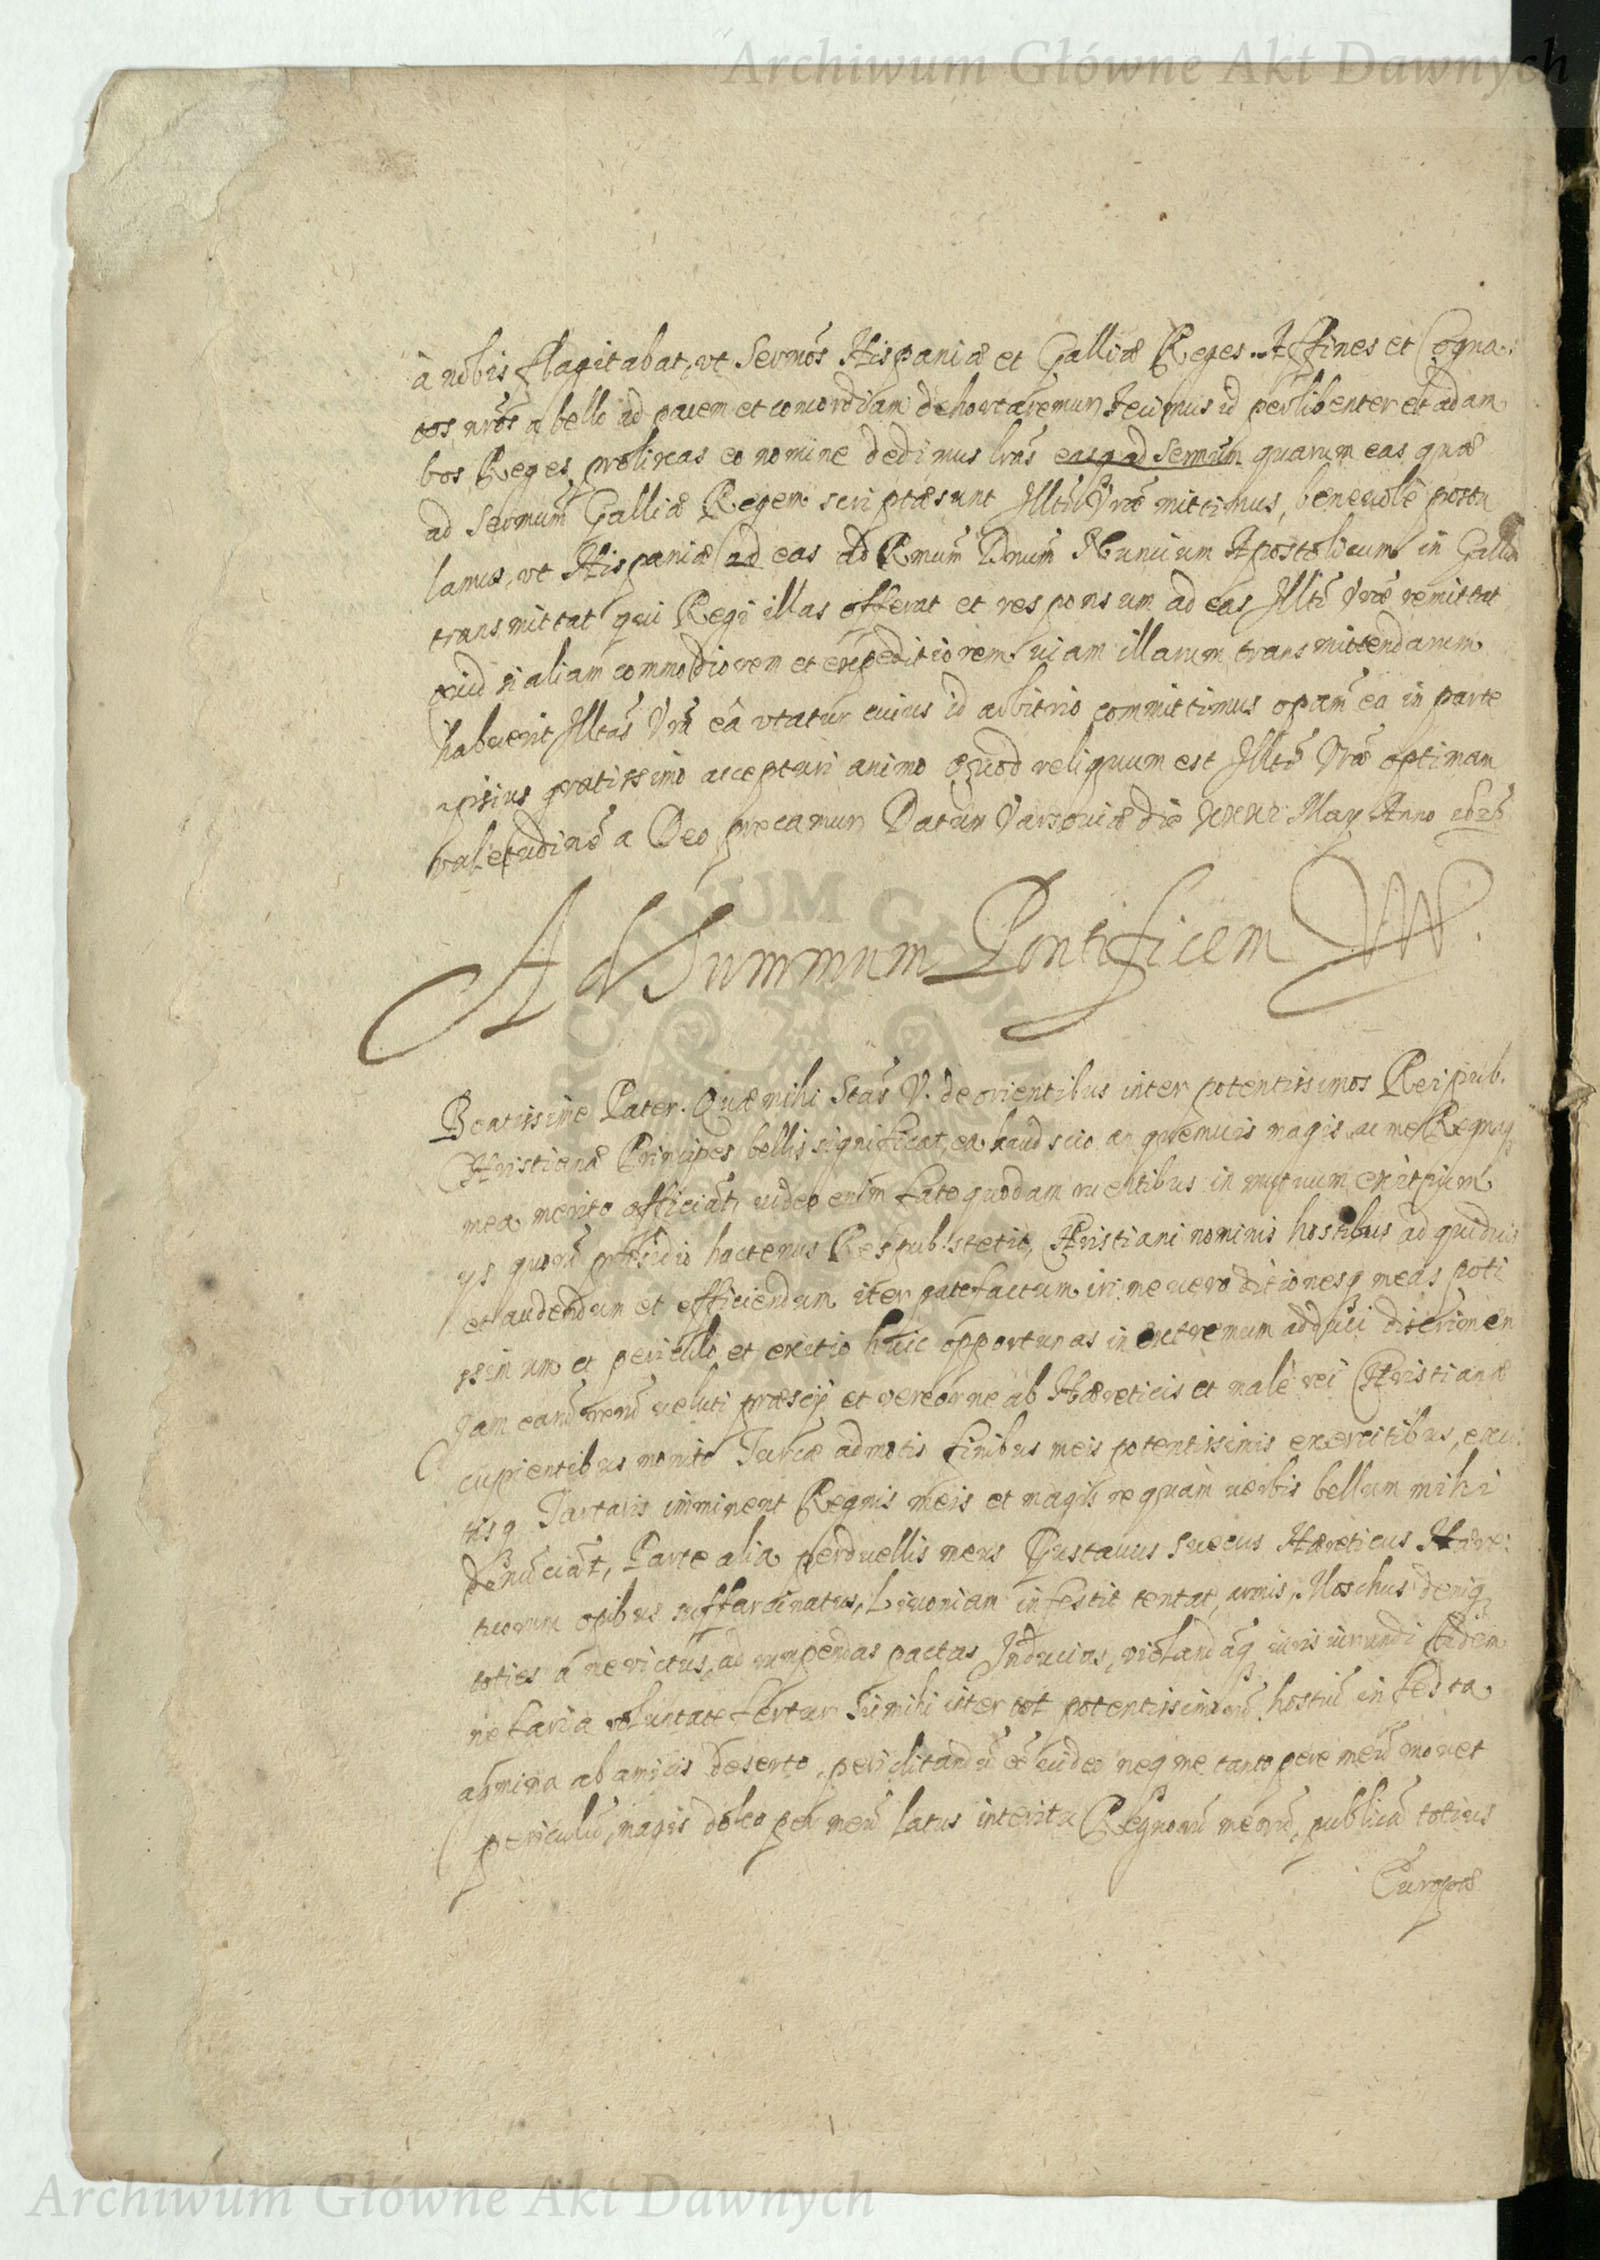 Archiwum Główne Akt Dawnych
à nobis flagitabat, vt Sermõs Hispaniæ et Galliæ Reges Affines et Cogna
tos nr̃os a bello ad pacem et concordiam dehortaremur, Fecimus id perlibenter et ad am
bos Reges prolixas eo nomine dedimus lr̃as easq ad Sermum quarum eas quæ
ad Sermum Galliæ Regem scriptæ sunt Illti Vræ mittimus, beneuolè postu
lamus, vt Hispaniæ ad eas ad Rmum Dnum Nuncium Apostolicum in Gallia
transmittat qui Regi illas offerat et responsum ad eas Illti Vræ remittat
quid si aliam commodiorem et expeditiorem uiam illarum transmittendarum
habuerit Illtas Vra eâ vtatur cuius id arbitrio committimus opam ea in parte
ipsius gratissimo accepturi animo Quod reliquum est Illti Vræ optimam
valetudinẽ a Deo precamur Datum Varsouiæ die XXXI May Anno 1625
Ad Summum Pontificem
Beatissime Pater. Quæ mihi Stas V. de orientibus inter potentissimos Reipub.
Christianæ Principes bellis significat, ea haud scio an quemuis magis ac me Regnaq
mea merito afficiãt, uideo enim fato quodam ruentibus in mutuum exitium
ys quorũ præsidio hactenus Respub. stetit, Christiani nominis hostibus ad quiduis
et audendum et efficiendum iter patefactum iri me uero ditionesq meas poti
ssimum et periculo et exitio huic opportunas in extremum adduci discrimen
Jam earũ rerũ veluti præscij et vereor ne ab Hæreticis et malè rei Christianæ
cupientibus moniti Turcæ admotis finibus meis potentissimis exercitibus, exci
tisq Tartaris imminent Regnis meis et magis re quàm uerbis bellum mihi
denũciãt, Parte alia perduellis meus Gustauus Suecus Hæreticus Hære
ticorum opibus suffarcinatus, Liuoniam infestis tentat armis, Moschus deniq
toties à me victus, ad rumpendas pactas Inducias, violandãq iurisiurandi fidem
nefaria voluntate fertur Si mihi inter tot potentissimorũ hostiũ infesta
agmina ab amicis deserto, periclitandũ ẽe uideo neq me tantopere meũ mouet
periculũ, magis doleo per meũ latus interitu Regnorũ meorũ, publicũ totius
Europæ
Archiwum Główne Akt Dawnych